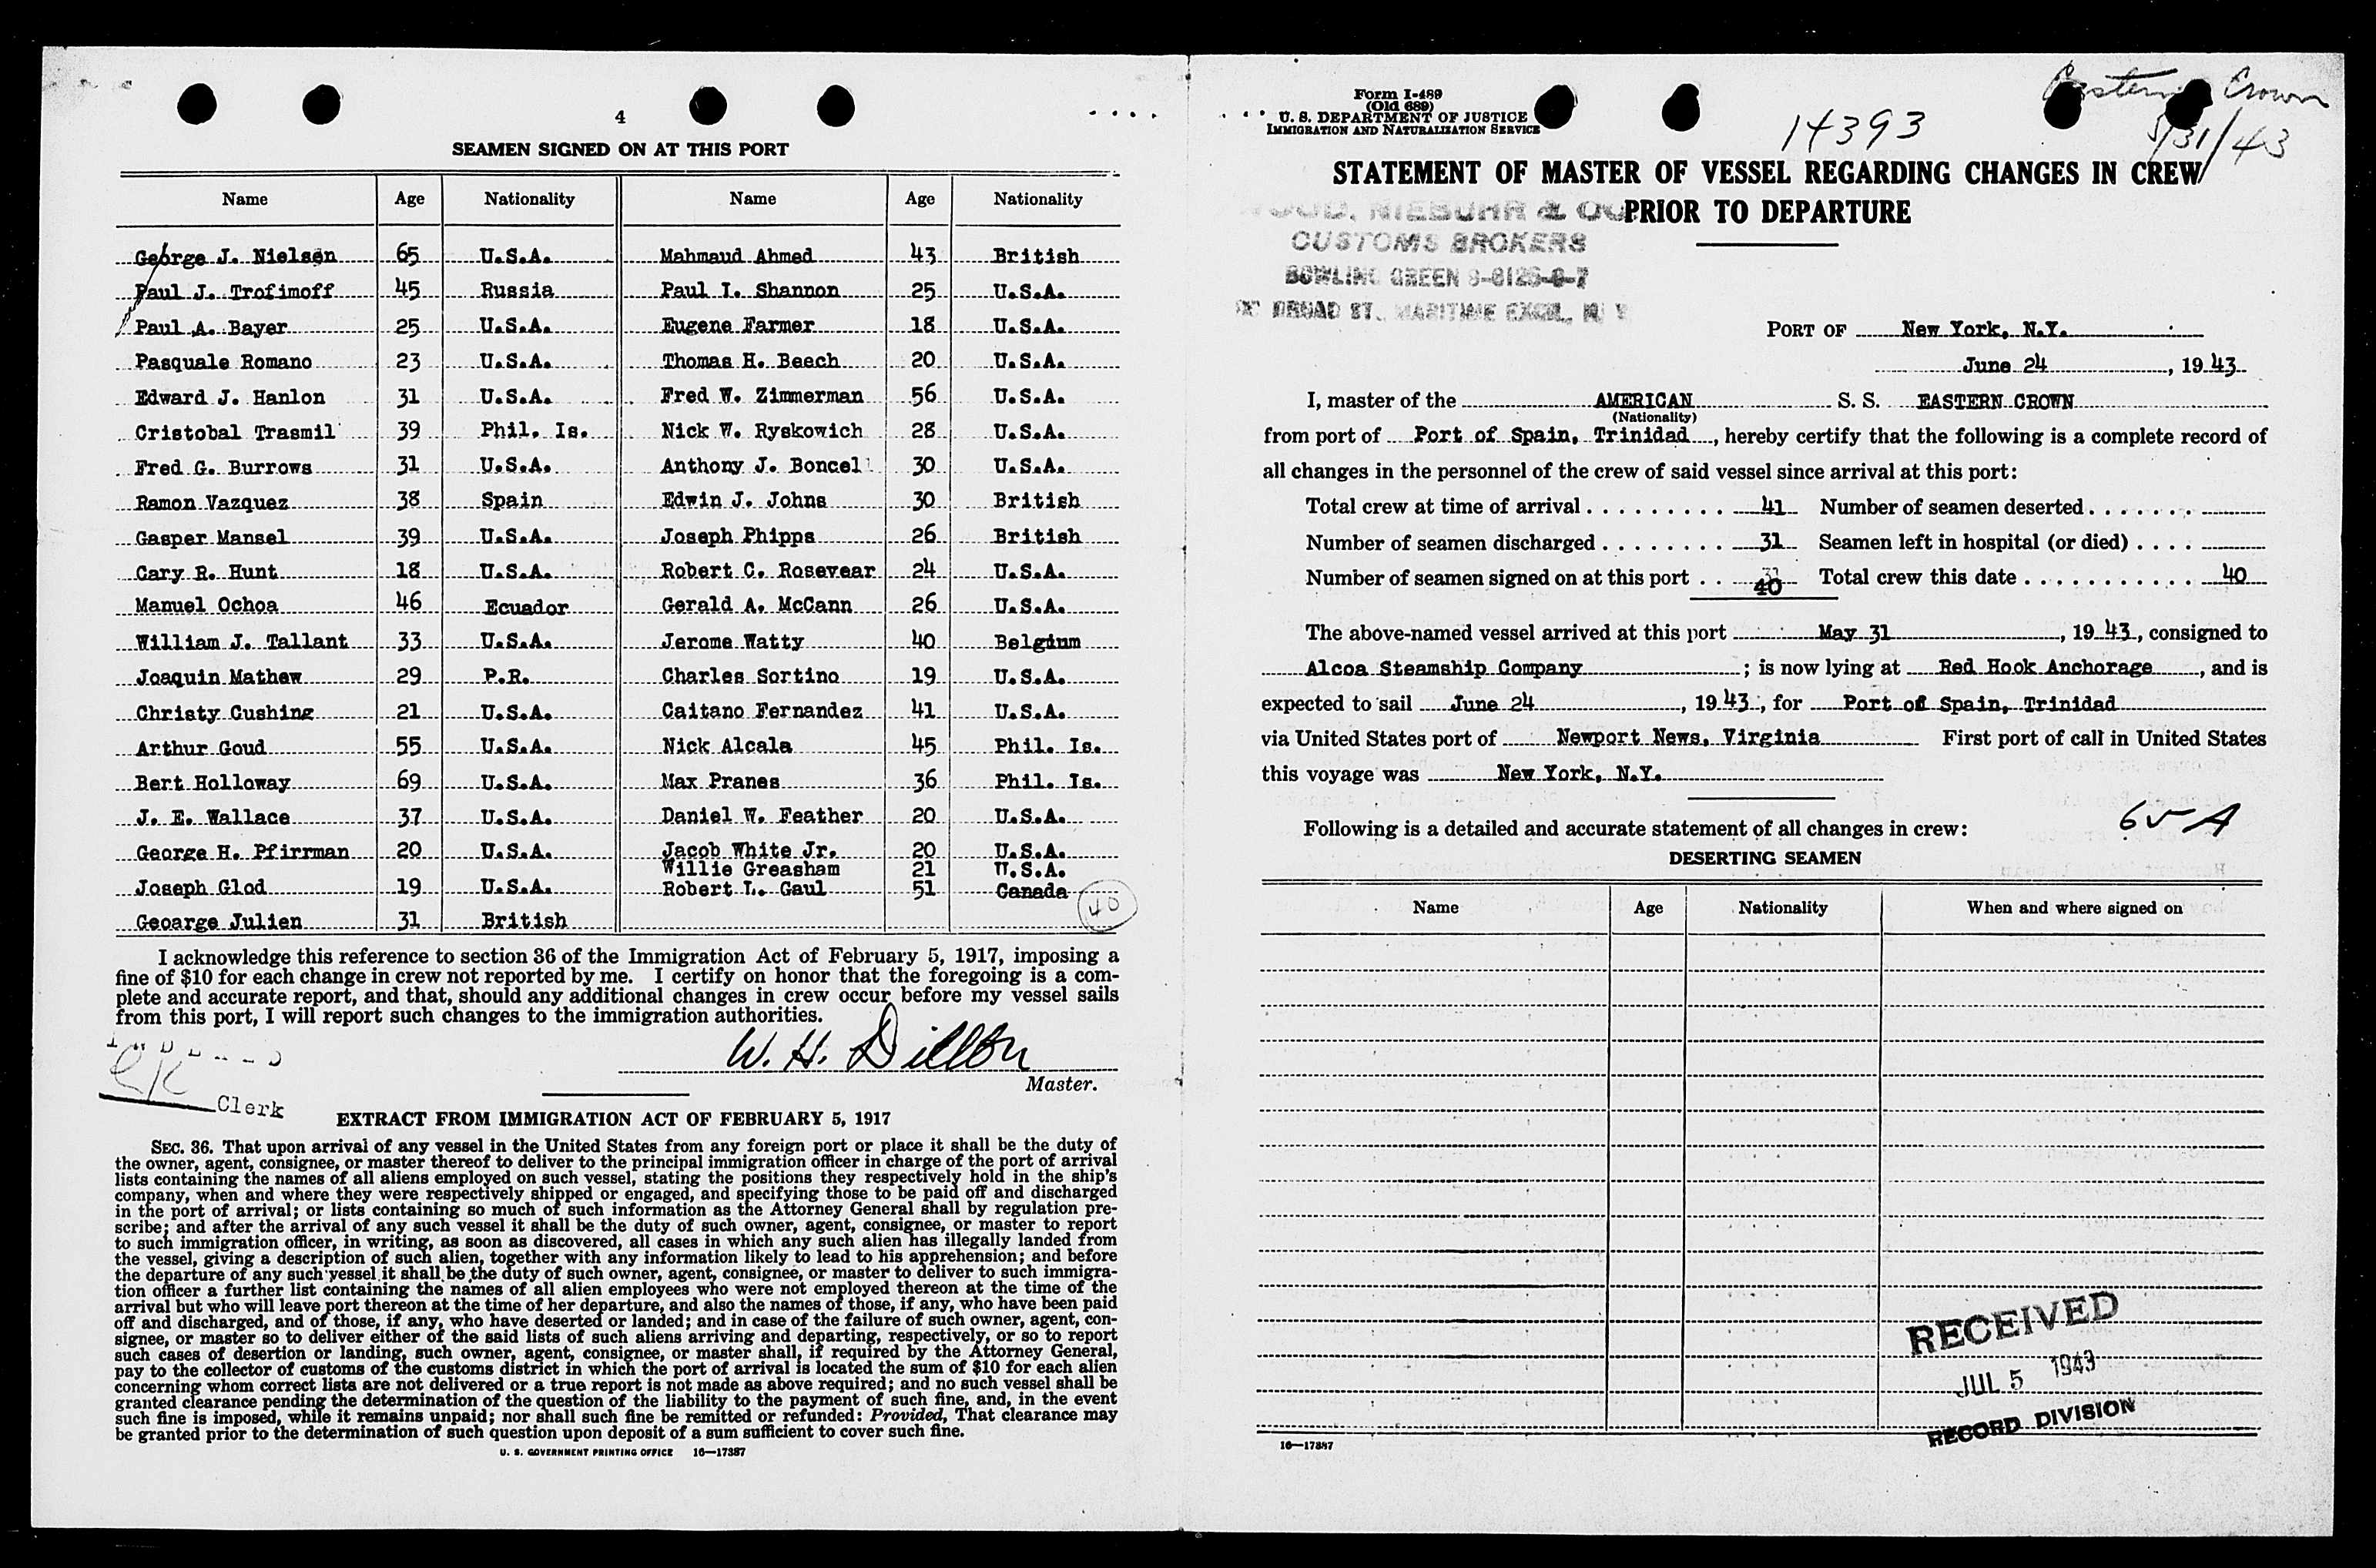 4
SEAMEN SIGNED ON AT THIS PORT
Name Age Nationality Name Age Nationality
George J. Nielsen 65 U.S.A. Mahmaud Ahmed 43 British
Paul J. Trofimoff 45 Russia Paul I. Shannon 25 U.S.A.
Paul A. Bayer 25 U.S.A. Eugene Farmer 18 U.S.A.
Pasquale Romano 23 U.S.A. Thomas H. Beech 20 U.S.A.
Edward J. Hanlon 31 U.S.A. Fred W. Zimmerman 56 U.S.A.
Cristobal Trasmil 39 Phil. Is. Nick W. Ryskowich 28 U.S.A.
Fred G. Burrows 31 U.S.A. Anthony J. Boncel 30 U.S.A.
Ramon Vazquez 38 Spain Edwin J. Johns 30 British
Gasper Mansel 39 U.S.A. Joseph Phipps 26 British
Cary R. Hunt 18 U.S.A. Robert C. Rosevear 24 U.S.A.
Manuel Ochoa 46 Ecuador Gerald A. McCann 26 U.S.A.
William J. Tallant 33 U.S.A. Jerome Watty 40 Belginm
Joaquin Mathew 29 P.R. Charles Sortino 19 U.S.A.
Christy Cushing 21 U.S.A. Caitano Fernandez 41 U.S.A.
Arthur Goud 55 U.S.A. Nick Alcala 45 Phil. Is.
Bert Holloway 69 U.S.A. Max Pranes 36 Phil. Is.
J. E. Wallace 37 U.S.A. Daniel W. Feather 20 U.S.A.
George H. Pfirrman 20 U.S.A. Jacob White Jr. 20 U.S.A.
Willie Greasham 21 U.S.A.
Joseph Glod 19 U.S.A. Robert L. Gaul 51 Canada
Geoarge Julien 31 British
40
I acknowledge this reference to section 36 of the Immigration Act of February 5, 1917, imposing a
fine of $10 for each change in crew not reported by me. I certify on honor that the foregoing is a com-
plete and accurate report, and that, should any additional changes in crew occur before my vessel sails
from this port, I will report such changes to the immigration authorities.
W. H. Dillon
Master.
Clerk
EXTRACT FROM IMMIGRATION ACT OF FEBRUARY 5, 1917
SEC. 36. That upon arrival of any vessel in the United States from any foreign port or place it shall be the duty of
the owner, agent, consignee, or master thereof to deliver to the principal immigration officer in charge of the port of arrival
lists containing the names of all aliens employed on such vessel, stating the positions they respectively hold in the ship's
company, when and where they were respectively shipped or engaged, and specifying those to be paid off and discharged
in the port of arrival; or lists containing so much of such information as the Attorney General shall by regulation pre-
scribe; and after the arrival of any such vessel it shall be the duty of such owner, agent, consignee, or master to report
to such immigration officer, in writing, as soon as discovered, all cases in which any such alien has illegally landed from
the vessel, giving a description of such alien, together with any information likely to lead to his apprehension; and before
the departure of any such vessel it shall be the duty of such owner, agent, consignee, or master to deliver to such immigra-
tion officer a further list containing the names of all alien employees who were not employed thereon at the time of the
arrival but who will leave port thereon at the time of her departure, and also the names of those, if any, who have been paid
off and discharged, and of those, if any, who have deserted or landed; and in case of the failure of such owner, agent, con-
signee, or master so to deliver either of the said lists of such aliens arriving and departing, respectively, or so to report
such cases of desertion or landing, such owner, agent, consignee, or master shall, if required by the Attorney General,
pay to the collector of customs of the customs district in which the port of arrival is located the sum of $10 for each alien
concerning whom correct lists are not delivered or a true report is not made as above required; and no such vessel shall be
granted clearance pending the determination of the question of the liability to the payment of such fine, and, in the event
such fine is imposed, while it remains unpaid; nor shall such fine be remitted or refunded: Provided, That clearance may
be granted prior to the determination of such question upon deposit of a sum sufficient to cover such fine.
U. S. GOVERNMENT PRINTING OFFICE 16—17387
Form I-489
(Old 689)
U. S. DEPARTMENT OF JUSTICE
IMMIGRATION AND NATURALIZATION SERVICE
14393
Eastern Crown
5/31/43
STATEMENT OF MASTER OF VESSEL REGARDING CHANGES IN CREW
PRIOR TO DEPARTURE
NIEBUHR & CO
CUSTOMS BROKERS
BOWLING GREEN 9-8125-6-7
BROAD ST., MARITIME EXCH., N. Y.
PORT OF New York, N.Y.
June 24, 1943
I, master of the AMERICAN S. S. EASTERN CROWN
(Nationality)
from port of Port of Spain, Trinidad, hereby certify that the following is a complete record of
all changes in the personnel of the crew of said vessel since arrival at this port:
Total crew at time of arrival 41 Number of seamen deserted
Number of seamen discharged 31 Seamen left in hospital (or died)
Number of seamen signed on at this port 40 Total crew this date 40
The above-named vessel arrived at this port May 31, 1943, consigned to
Alcoa Steamship Company; is now lying at Red Hook Anchorage, and is
expected to sail June 24, 1943, for Port of Spain, Trinidad
via United States port of Newport News, Virginia First port of call in United States
this voyage was New York, N.Y.
Following is a detailed and accurate statement of all changes in crew:
DESERTING SEAMEN
Name Age Nationality When and where signed on
RECEIVED
JUL 5 1943
RECORD DIVISION
16—17387